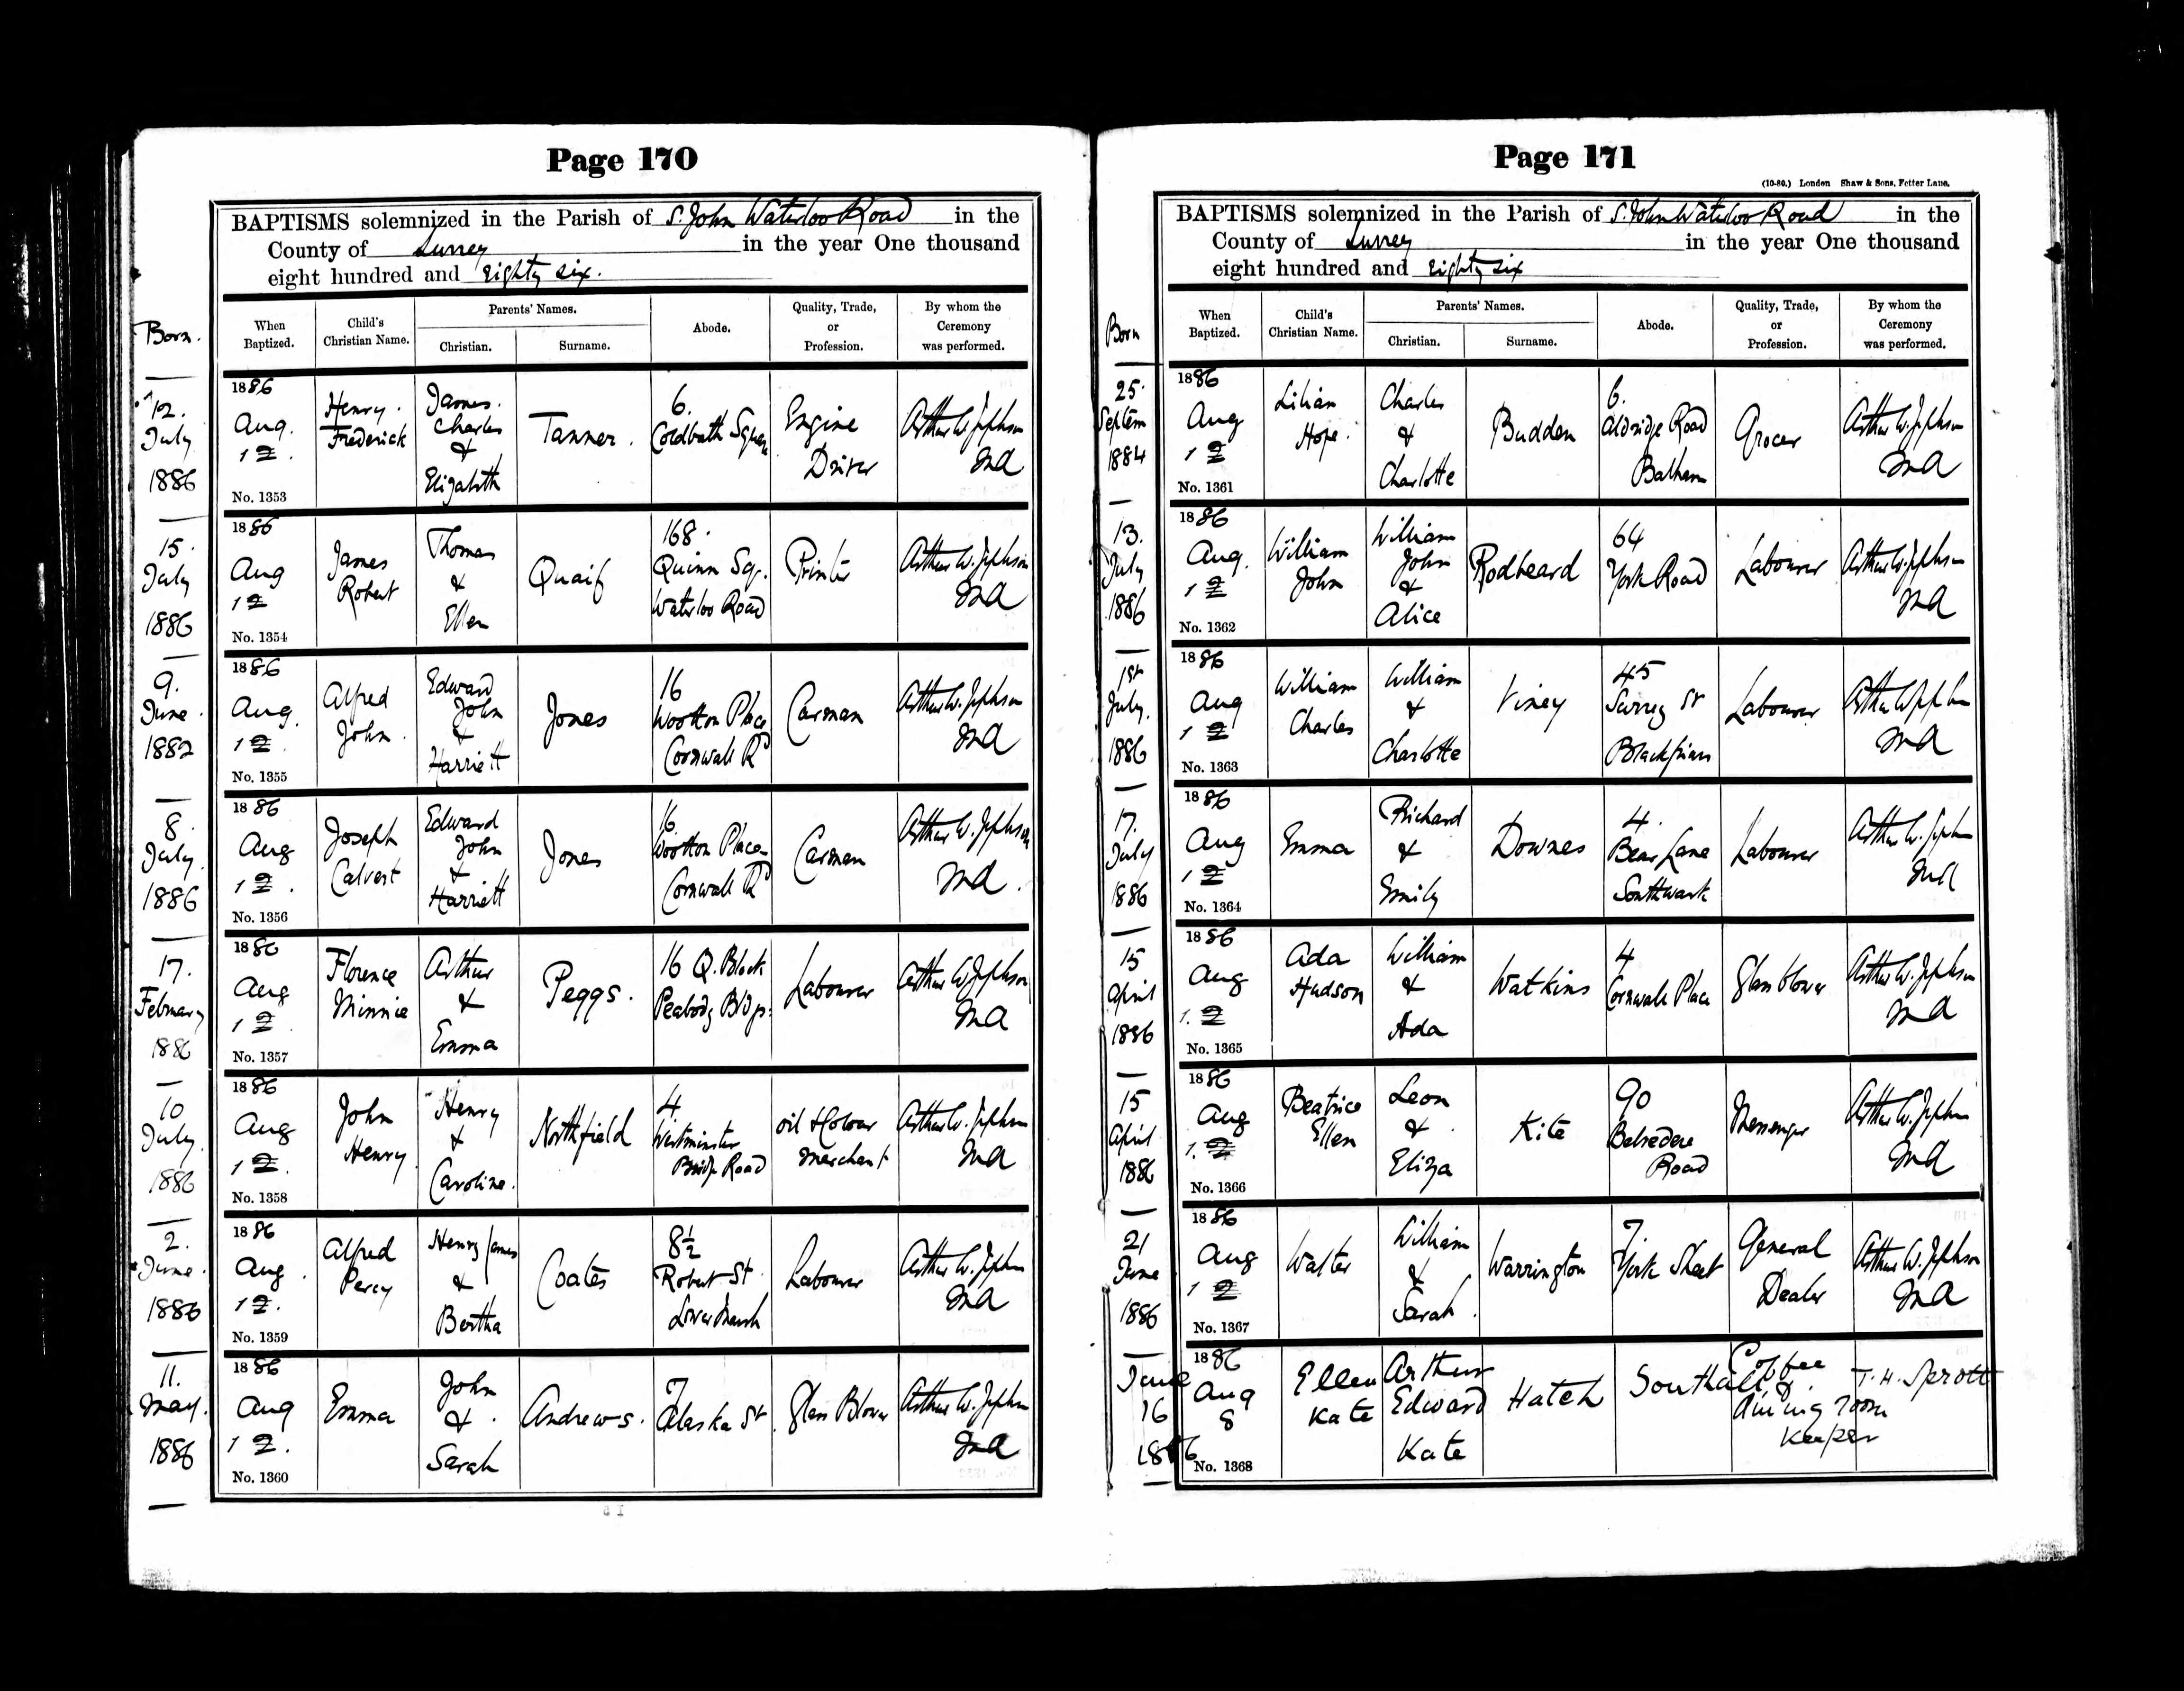 Page 170
BAPTISMS solemnized in the Parish of S. John Waterloo Road in the
County of Surrey in the year One thousand
eight hundred and Eighty six.
Born.
When Baptized.
Child's Christian Name.
Parents' Names.
Christian.
Surname.
Abode.
Quality, Trade, or Profession.
By whom the Ceremony was performed.
12. July 1886
1886 Aug. 1
No. 1353
Henry Frederick
James Charles & Elizabeth
Tanner.
6. Coldbath Square
Engine Driver
Arthur W. Jephson MA
15. July 1886
1886 Aug 1
No. 1354
James Robert
Thomas & Ellen
Quaif
168. Quinn Sq. Waterloo Road
Printer
Arthur W. Jephson MA
9. June 1882
1886 Aug. 1
No. 1355
Alfred John
Edward John & Harriett
Jones
16 Wootton Place Cornwall Rd
Carman
Arthur W. Jephson MA
8. July 1886
1886 Aug 1
No. 1356
Joseph Calvert
Edward John & Harriett
Jones
16. Wootton Place Cornwall Rd
Carman
Arthur W. Jephson MA.
17. February 1886
1886 Aug 1
No. 1357
Florence Minnie
Arthur & Emma
Peggs.
16 Q. Block Peabody Bldgs.
Labourer
Arthur W Jephson MA
10 July 1886
1886 Aug 1
No. 1358
John Henry
Henry & Caroline.
Northfield
4 Westminster Bridge Road
oil & Colour merchant
Arthur W. Jephson MA
2. June 1886
1886 Aug. 1
No. 1359
Alfred Percy
Henry James & Bertha
Coates
8½ Robert St. Lower Marsh
Labourer
Arthur W. Jephson MA
11. May. 1886
1886 Aug 1
No. 1360
Emma
John & Sarah
Andrews.
7 Alaska St.
Glass Blower
Arthur W. Jephson MA
Page 171
(10-80.) London Shaw & Sons, Fetter Lane,
BAPTISMS solemnized in the Parish of S. John Waterloo Road in the
County of Surrey in the year One thousand
eight hundred and Eighty six
Born
When Baptized.
Child's Christian Name.
Parents' Names.
Christian.
Surname.
Abode.
Quality, Trade, or Profession.
By whom the Ceremony was performed.
25. Septem 1884
1886 Aug 1
No. 1361
Lilian Hope.
Charles & Charlotte
Budden
6. Aldridge Road Balham
Grocer
Arthur W. Jephson MA
13. July 1886
1886 Aug. 1
No. 1362
William John
William John & Alice
Rodbeard
64 York Road
Labourer
Arthur W. Jephson MA
1st July. 1886
1886 Aug 1
No. 1363
William Charles
William & Charlotte
Viney
45 Surrey St Blackfriars
Labourer
Arthur W Jephson MA
17. July 1886
1886 Aug 1
No. 1364
Emma
Richard & Emily
Downes
4. Bear Lane Southwark
Labourer
Arthur W. Jephson MA
15 April 1886
1886 Aug 1.
No. 1365
Ada Hudson
William & Ada
Watkins
4 Cornwall Place
Glass blower
Arthur W. Jephson MA
15 April 1886
1886 Aug 1.
No. 1366
Beatrice Ellen
Leon & Eliza
Kite
90 Belvedere Road
Messenger
Arthur W. Jephson MA
21 June 1886
1886 Aug 1
No. 1367
Walter
William & Sarah.
Warrington
7. York Street
General Dealer
Arthur W. Jephson MA
June 16 1886
1886 Aug 8
No. 1368
Ellen Kate
Arthur Edward Kate
Hatch
Southall
Coffee & dining room keeper
T. H. Sprott